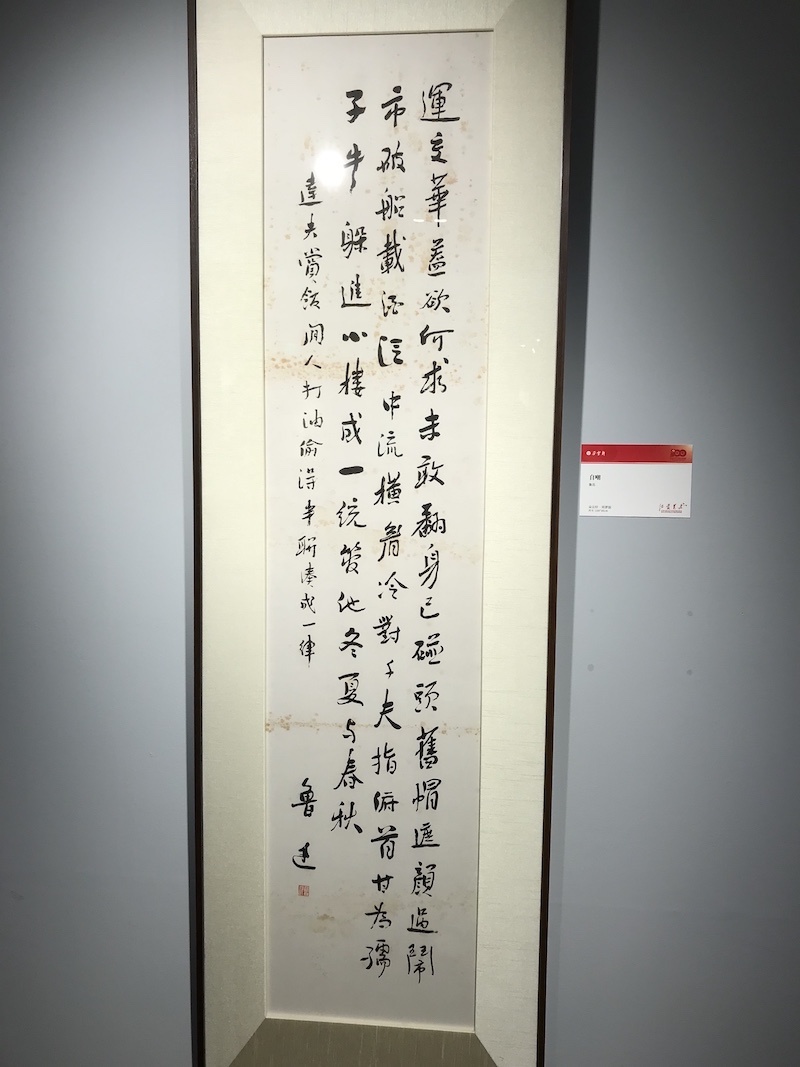 運交華蓋欲何求未敢翻身已碰頭舊帽遮顏過鬧
市破船載酒泛中流橫眉冷對千夫指俯首甘為孺
子牛躲進小樓成一統管他冬夏与春秋
達夫賞飯閒人打油偷得半聯湊成一律
魯迅
自嘲